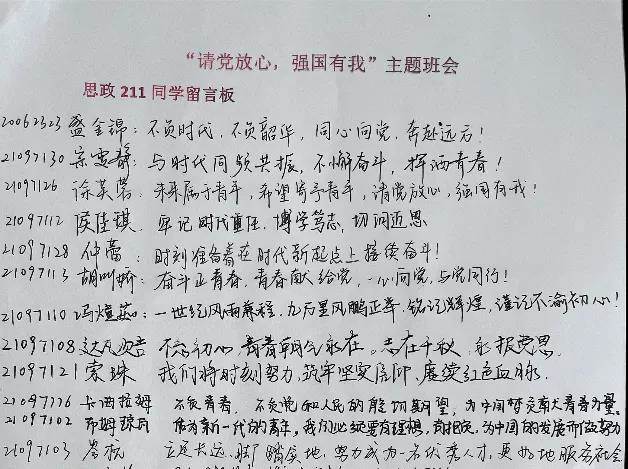 “请党放心，强国有我”主题班会
思政 211 同学留言板
20062323 盛金锦：不负时代，不负韶华，同心向党，奔赴远方！
21097130 宗雪静：与时代同频共振，不懈奋斗，挥洒青春！
21097126 徐英蓉：未来属于青年，希望寄予青年，请党放心，强国有我！
21097112 侯佳琪：牢记时代重任，博学笃志，切问近思
21097128 仲蕾：时刻准备着在时代新起点上接续奋斗！
21097113 胡叫娇：奋斗正青春，青春献给党，一心向党，与党同行！
21097110 冯煊茹：一世纪风雨兼程，九万里风鹏正举，铭记辉煌，谨记不渝初心！
21097108 达瓦 不忘初心，青春朝气永在。志在千秋，永报党恩
21097121 家珠 我们将时刻努力，筑牢坚实信仰，赓续红色血脉.
21097116 卡西拉姆 不负青春，不负党和人民的殷切期望，为中国梦贡献大青春力量。
21097102 作为新一代的青年，我们必须要有理想，有抱负，为中国的发展而做努力
21097103 立足长远，脚踏实地，努力成为一名优秀人才，更好地服务社会